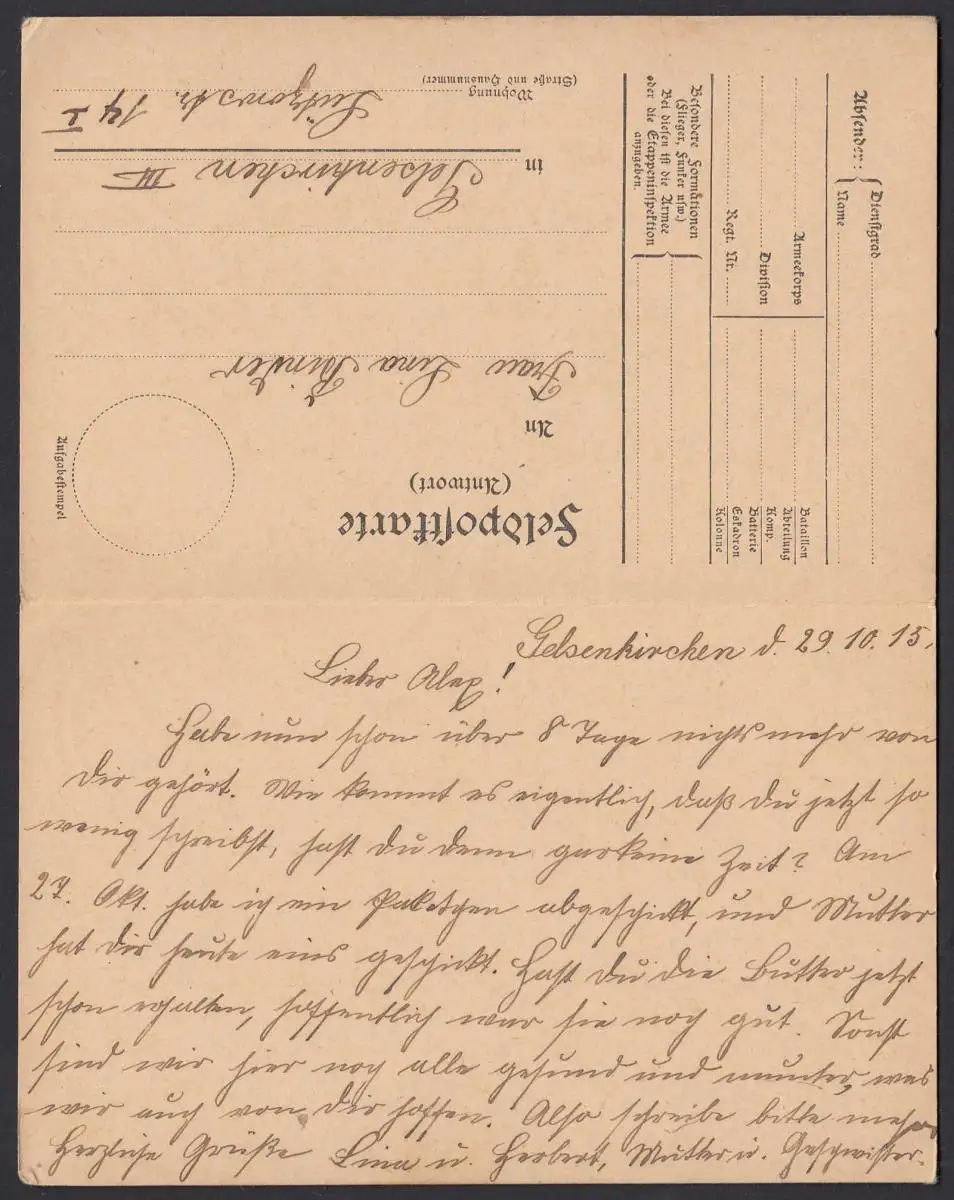 Feldpostkarte
(Antwort)
Aufgabestempel
An
Frau Lina
in Gelsenkirchen III
Wohnung
(Straße und Hausnummer)
Lützowstr. 14 I
Absender:
Dienstgrad
Name
Armeekorps
Division
Regt. Nr.
Bataillon
Abteilung
Komp.
Batterie
Eskadron
Kolonne
Besondere Formationen
(Flieger, Funker usw.)
Bei diesen ist die Armee
oder die Etappeninspektion
anzugeben.
Gelsenkirchen d. 29.10.15.
Lieber Alex!
Habe nun schon über 8 Tage nichts mehr von
Dir gehört. Wie kommt es eigentlich, daß Du jetzt so
wenig schreibst, hast Du denn garkeine Zeit? Am
27. Okt. habe ich ein Paketchen abgeschickt, und Mutter
hat Dir heute eins geschickt. Hast Du die Butter jetzt
schon erhalten, hoffentlich war sie noch gut. Sonst
sind wir hier noch alle gesund und munter, was
wir auch von Dir hoffen. Also schreibe bitte mehr
Herzliche Grüße Lina u. Herbert, Mutter u. Geschwister.